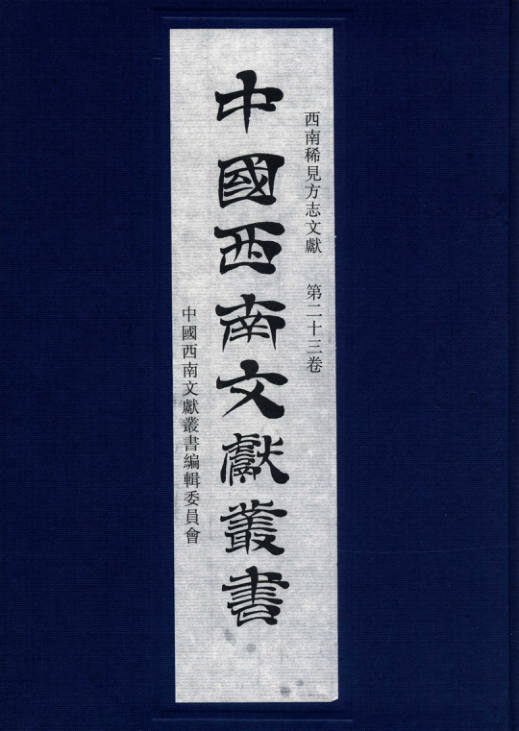 西南稀見方志文獻 第二十三卷
中國西南文獻叢書
中國西南文獻叢書編輯委員會